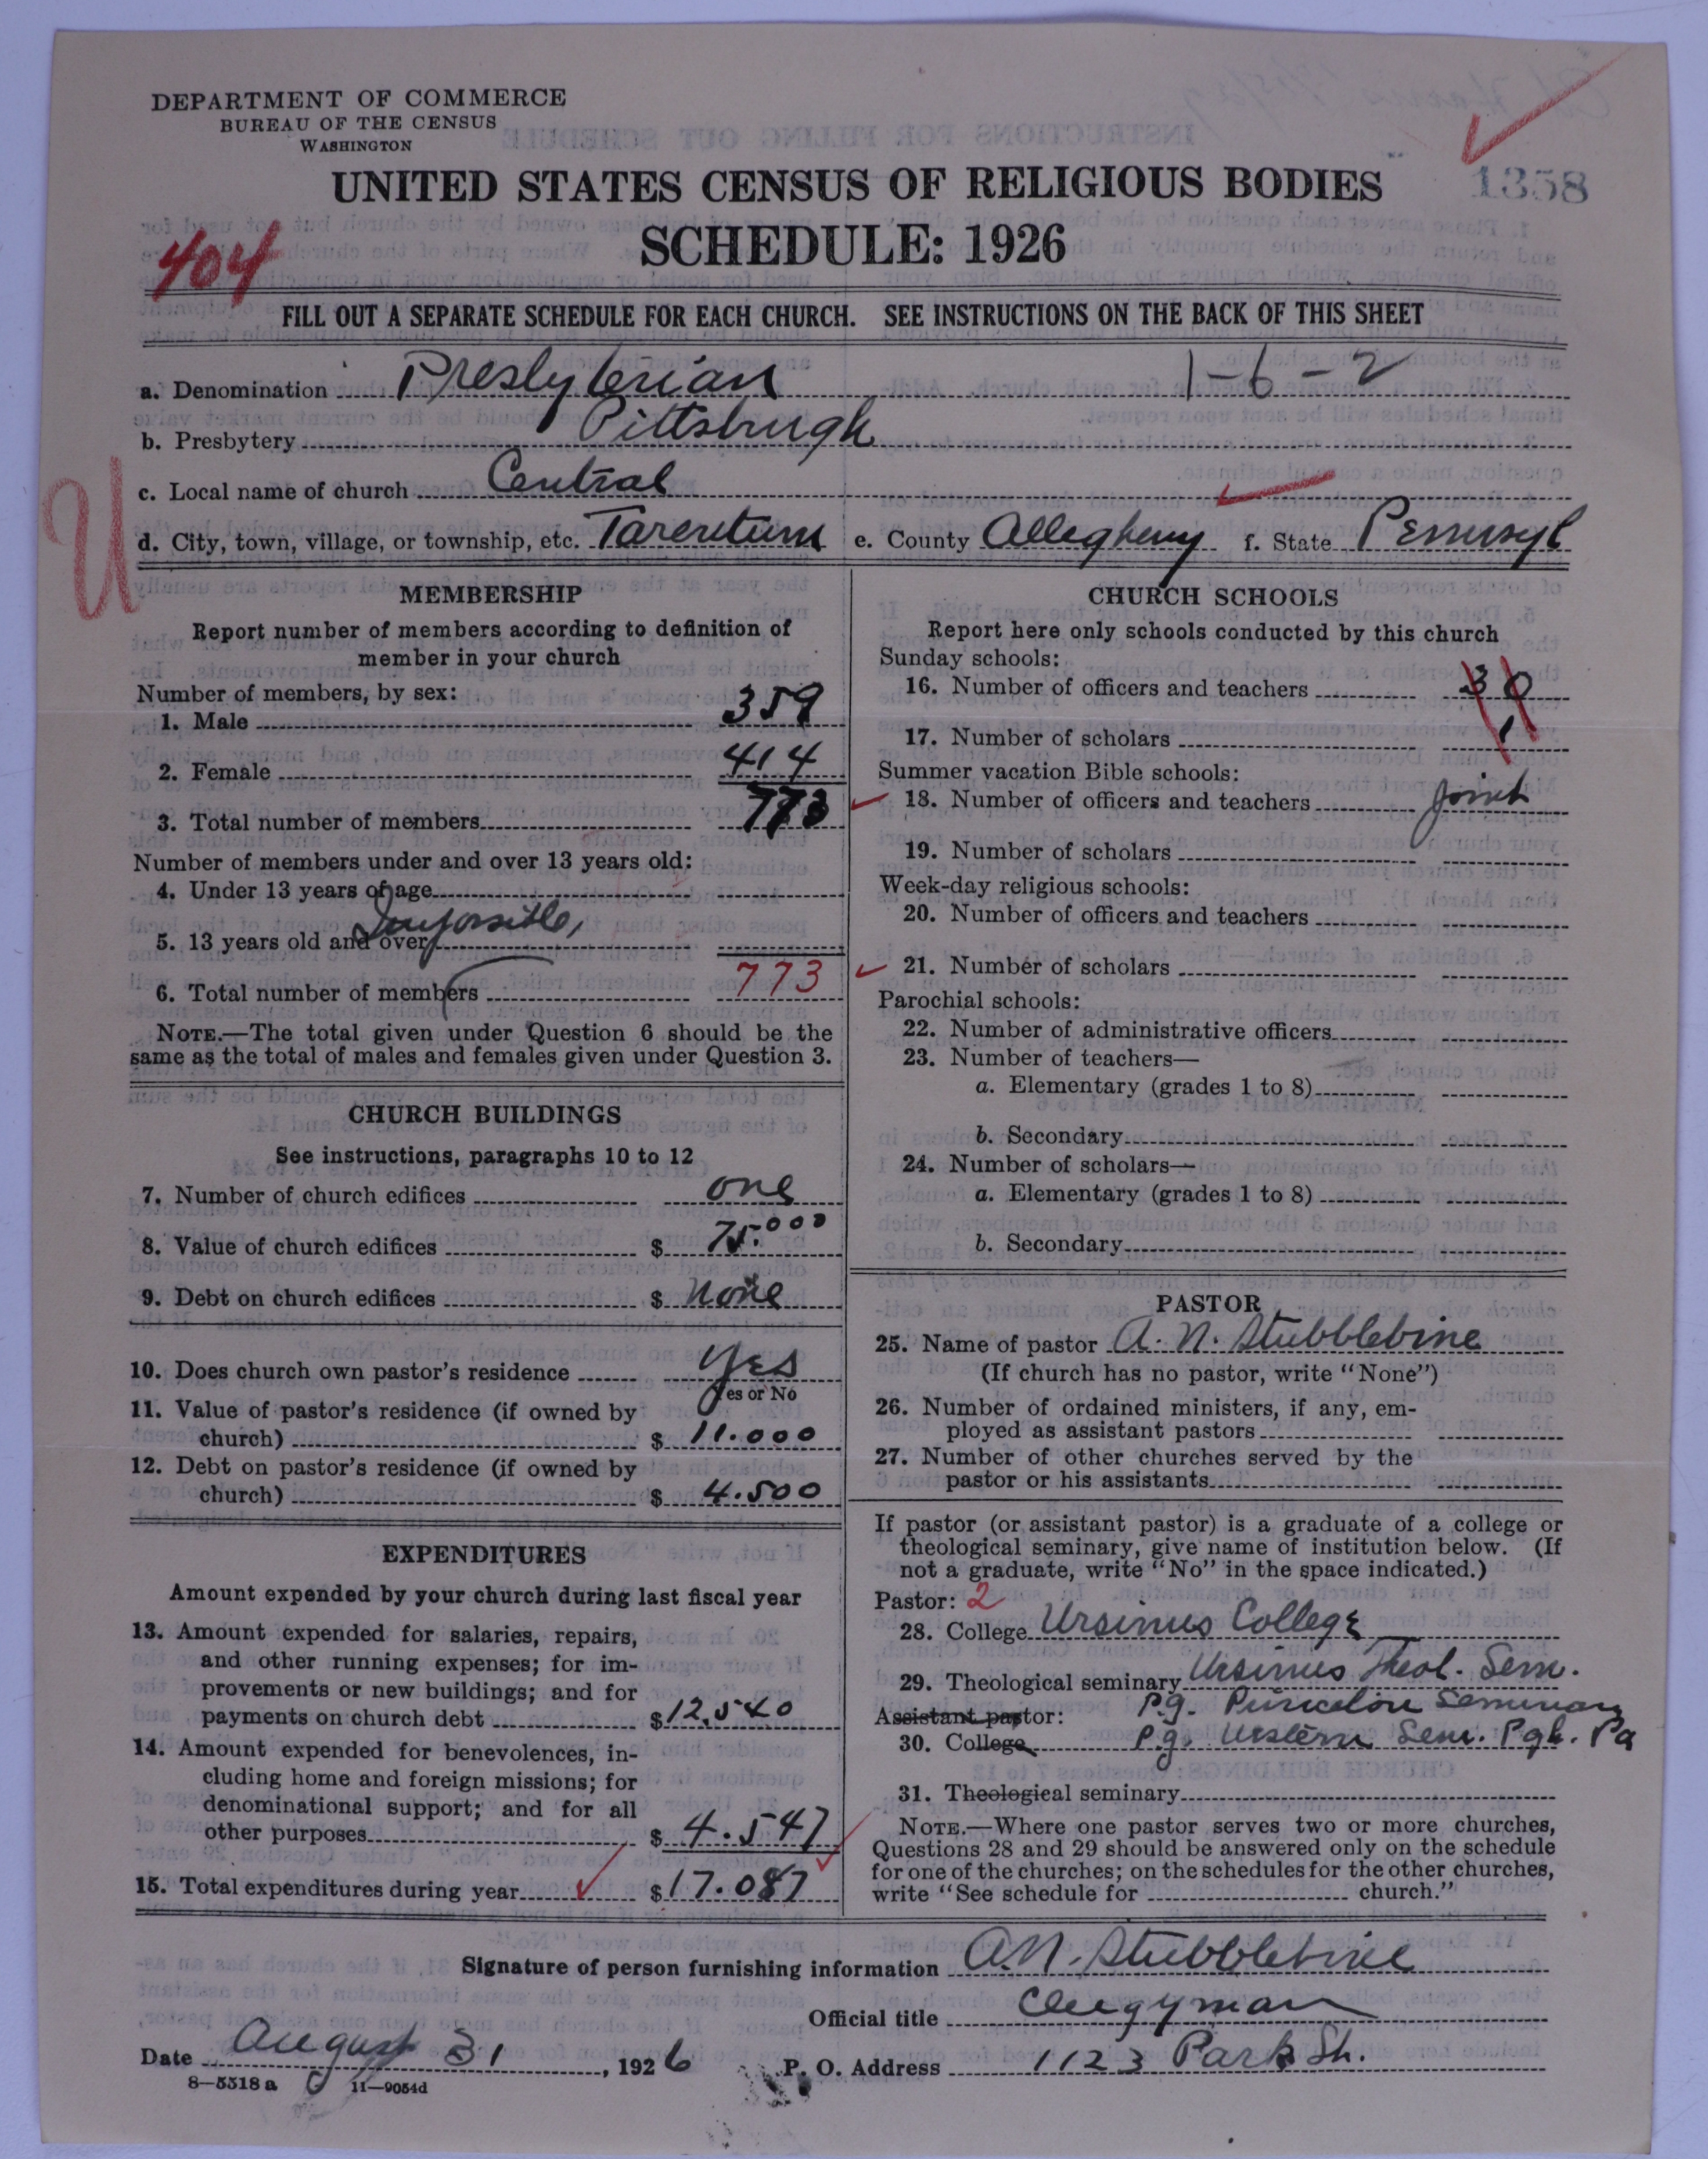 DEPARTMENT OF COMMERCE
BUREAU OF THE CENSUS
WASHINGTON
UNITED STATES CENSUS OF RELIGIOUS BODIES
1358
SCHEDULE: 1926
404
FILL OUT A SEPARATE SCHEDULE FOR EACH CHURCH. SEE INSTRUCTIONS ON THE BACK OF THIS SHEET
a. Denomination Presbyterian 1-6-2
b. Presbytery Pittsburgh
c. Local name of church Central
U
d. City, town, village, or township, etc. Tarentum e. County Allegheny f. State Pennsyl
MEMBERSHIP
Report number of members according to definition of
member in your church
Number of members, by sex:
1. Male 359
2. Female 414
3. Total number of members 773
Number of members under and over 13 years old:
4. Under 13 years of age
Impossible,
5. 13 years old and over
6. Total number of members 773
NOTE.—The total given under Question 6 should be the
same as the total of males and females given under Question 3.
CHURCH BUILDINGS
See instructions, paragraphs 10 to 12
7. Number of church edifices one
8. Value of church edifices $ 75.000
9. Debt on church edifices $ None
10. Does church own pastor's residence Yes
Yes or No
11. Value of pastor's residence (if owned by
church) $ 11.000
12. Debt on pastor's residence (if owned by
church) $ 4.500
EXPENDITURES
Amount expended by your church during last fiscal year
13. Amount expended for salaries, repairs,
and other running expenses; for im-
provements or new buildings; and for
payments on church debt $ 12.540
14. Amount expended for benevolences, in-
cluding home and foreign missions; for
denominational support; and for all
other purposes $ 4.547
15. Total expenditures during year $ 17.087
CHURCH SCHOOLS
Report here only schools conducted by this church
Sunday schools:
16. Number of officers and teachers 30
17. Number of scholars
Summer vacation Bible schools:
18. Number of officers and teachers Joint
19. Number of scholars
Week-day religious schools:
20. Number of officers and teachers
21. Number of scholars
Parochial schools:
22. Number of administrative officers
23. Number of teachers—
a. Elementary (grades 1 to 8)
b. Secondary
24. Number of scholars—
a. Elementary (grades 1 to 8)
b. Secondary
PASTOR
25. Name of pastor A. N. Stubblebine
(If church has no pastor, write "None")
26. Number of ordained ministers, if any, em-
ployed as assistant pastors
27. Number of other churches served by the
pastor or his assistants
If pastor (or assistant pastor) is a graduate of a college or
theological seminary, give name of institution below. (If
not a graduate, write "No" in the space indicated.)
Pastor: 2
28. College Ursinus College
29. Theological seminary Ursinus Theol. Sem.
Assistant pastor: P.g. Princeton Seminary
30. College P.g. Western Sem. Pgh. Pa
31. Theological seminary
NOTE.—Where one pastor serves two or more churches,
Questions 28 and 29 should be answered only on the schedule
for one of the churches; on the schedules for the other churches,
write "See schedule for church."
Signature of person furnishing information A. N. Stubblebine
Official title Clergyman
Date August 31, 1926 P. O. Address 1123 Park St.
8—5518 a 11—9054d